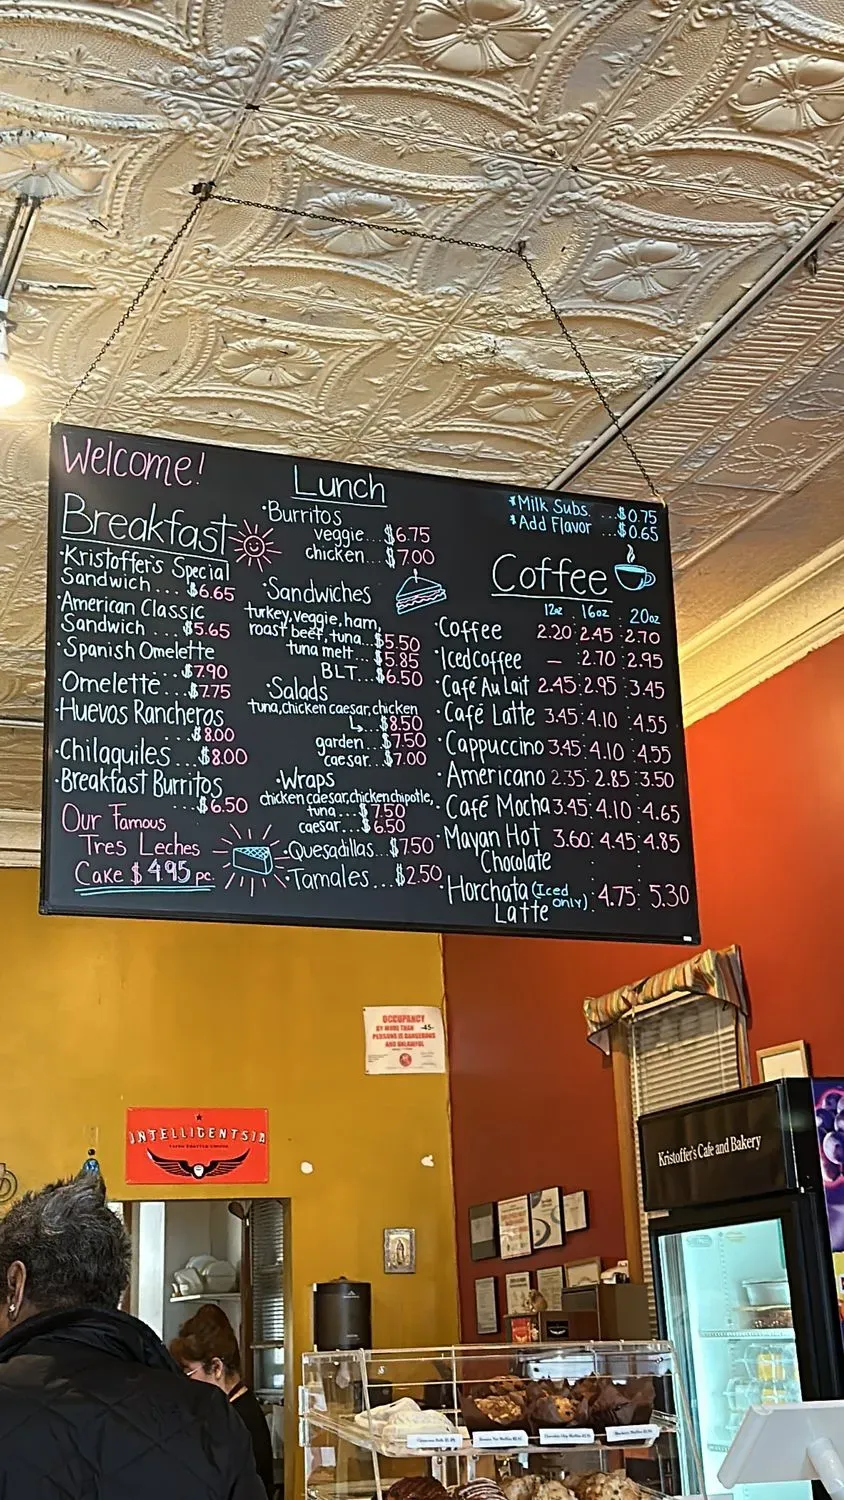 Welcome!
Breakfast
·Kristoffer's Special
Sandwich... $6.65
·American Classic
Sandwich... $5.65
·Spanish Omelette
...$7.90
·Omelette...$7.75
·Huevos Rancheros
...$8.00
·Chilaquiles...$8.00
·Breakfast Burritos
...$6.50
Our Famous
Tres Leches
Cake $4.95 pc.
Lunch
·Burritos
veggie...$6.75
chicken...$7.00
·Sandwiches
turkey, veggie, ham,
roast beef, tuna...$5.50
tuna melt...$5.85
BLT...$6.50
·Salads
tuna, chicken caesar, chicken
↳...$8.50
garden...$7.50
caesar...$7.00
·Wraps
chicken caesar, chicken chipotle,
tuna...$7.50
caesar...$6.50
·Quesadillas...$7.50
·Tamales...$2.50
*Milk Subs ...$0.75
*Add Flavor ...$0.65
Coffee
12oz 16oz 20oz
·Coffee 2.20 2.45 2.70
·Iced coffee — 2.70 2.95
·Café Au Lait 2.45 2.95 3.45
·Café Latte 3.45 4.10 4.55
·Cappuccino 3.45 4.10 4.55
·Americano 2.35 2.85 3.50
·Café Mocha 3.45 4.10 4.65
·Mayan Hot 3.60 4.45 4.85
Chocolate
·Horchata (Iced only) 4.75 5.30
Latte
OCCUPANCY
BY MORE THAN -45-
PERSONS IS DANGEROUS
AND UNLAWFUL
INTELLIGENTSIA
Kristoffer's Cafe and Bakery